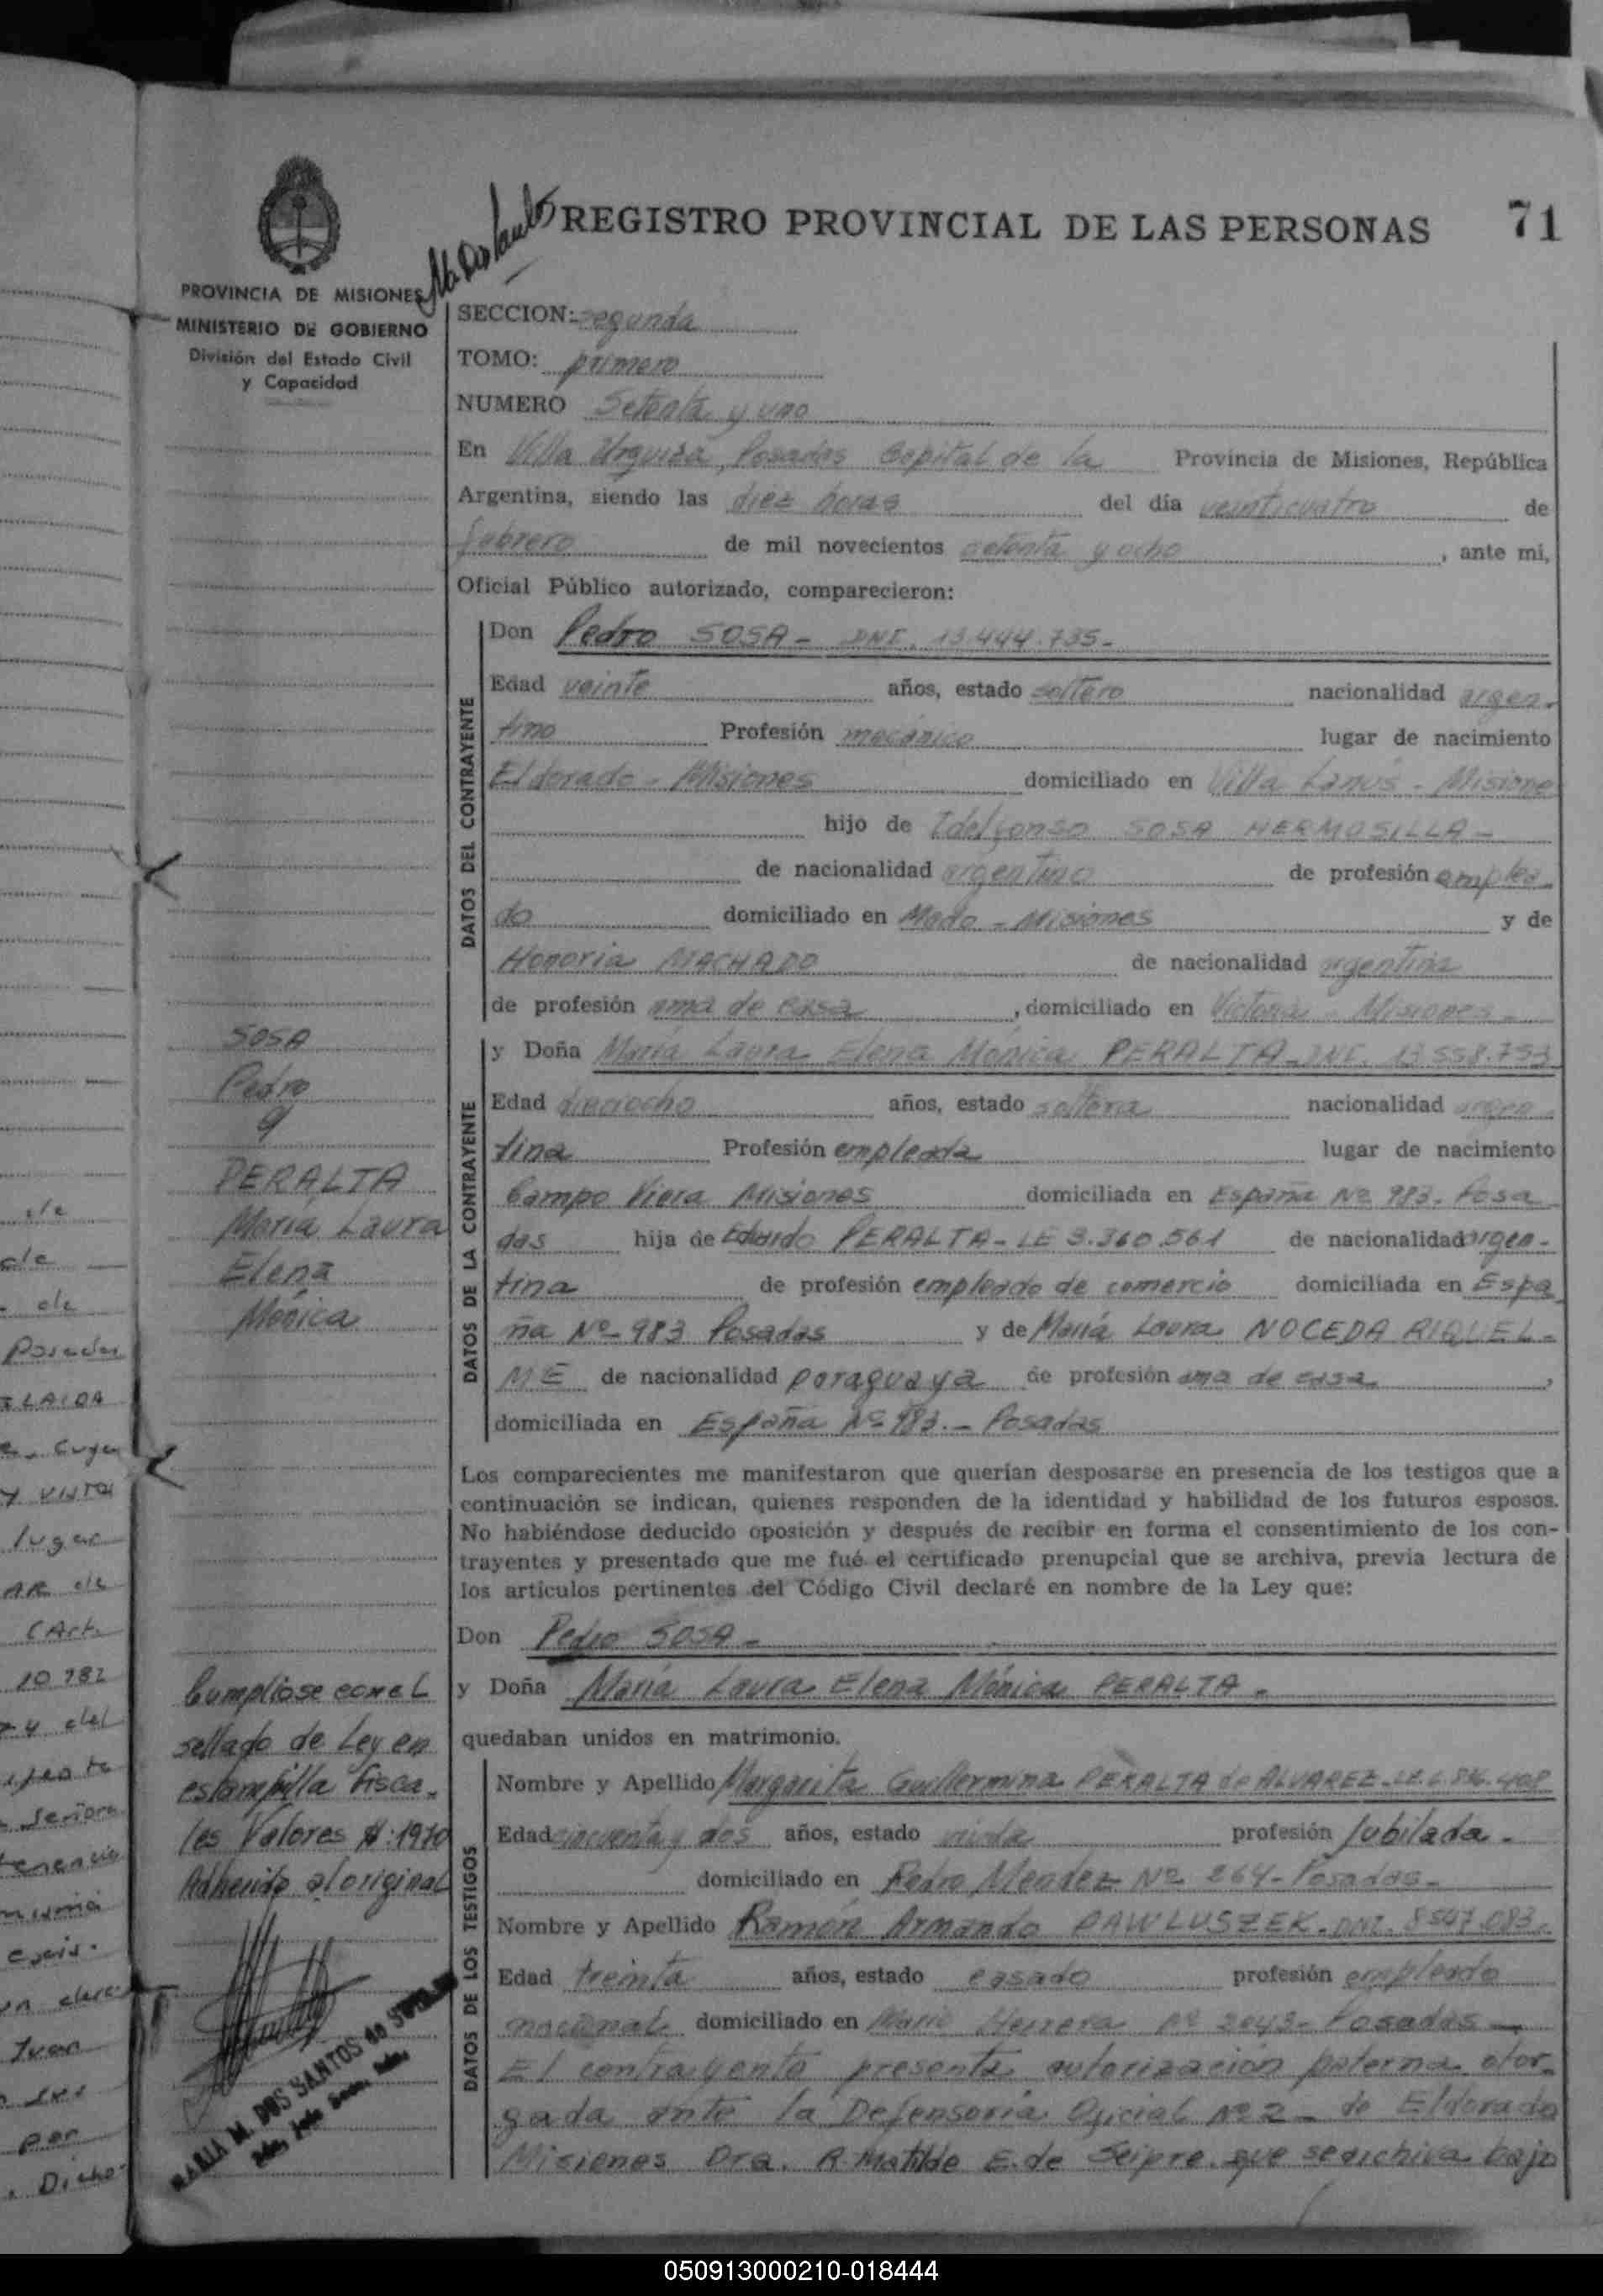 REGISTRO PROVINCIAL DE LAS PERSONAS 71
PROVINCIA DE MISIONES
MINISTERIO DE GOBIERNO
División del Estado Civil
y Capacidad
SECCION: segunda
TOMO: primero
NUMERO Setenta y uno
En Villa Urquiza, Posadas Capital de la Provincia de Misiones, República
Argentina, siendo las diez horas del día veinticuatro de
febrero de mil novecientos setenta y ocho, ante mi,
Oficial Público autorizado, comparecieron:
DATOS DEL CONTRAYENTE
Don Pedro SOSA - DNI. 13.444.735-
Edad veinte años, estado soltero nacionalidad argen-
tino Profesión mecánico lugar de nacimiento
Eldorado - Misiones domiciliado en Villa Lanús - Misione
hijo de Idelfonso SOSA HERMOSILLA-
de nacionalidad argentino de profesión emplea-
do domiciliado en Mado - Misiones y de
Honoria MACHADO de nacionalidad argentina
de profesión ama de casa, domiciliado en Victoria - Misiones-
DATOS DE LA CONTRAYENTE
y Doña María Laura Elena Mónica PERALTA-DNI. 13.558.753
Edad dieciocho años, estado soltera nacionalidad argen-
tina Profesión empleada lugar de nacimiento
Campo Viera Misiones domiciliada en España Nº 983. Posa
das hija de Eduardo PERALTA - LE 3.360.561 de nacionalidad argen-
tina de profesión empleado de comercio domiciliada en Espa
ña Nº 983 Posadas y de María Laura NOCEDA RIQUEL-
ME de nacionalidad paraguaya de profesión ama de casa,
domiciliada en España Nº 983.- Posadas
SOSA
Pedro
y
PERALTA
María Laura
Elena
Mónica
Los comparecientes me manifestaron que querían desposarse en presencia de los testigos que a
continuación se indican, quienes responden de la identidad y habilidad de los futuros esposos.
No habiéndose deducido oposición y después de recibir en forma el consentimiento de los con-
trayentes y presentado que me fué el certificado prenupcial que se archiva, previa lectura de
los artículos pertinentes del Código Civil declaré en nombre de la Ley que:
Don Pedro SOSA -
y Doña María Laura Elena Mónica PERALTA -
quedaban unidos en matrimonio.
Cumpliose con el
sellado de Ley en
estampilla fisca-
les Valores $:1970
Adherido al original
DATOS DE LOS TESTIGOS
Nombre y Apellido Margarita Guillermina PERALTA de ALVAREZ-
Edad cincuenta y dos años, estado viuda profesión Jubilada -
domiciliado en Pedro Mendez Nº 264- Posadas-
Nombre y Apellido Ramón Armando PAWLUSZEK - DNI. 8547.083-
Edad treinta años, estado casado profesión empleado
nacional domiciliado en Mario Herrera Nº 2043- Posadas -
El contrayente presenta autorización paterna otor-
gada ante la Defensoria Oficial Nº 2 - de Eldorado
Misiones Dra. R. Matilde E. de Seipre. que se archiva bajo
MARIA M. DOS SANTOS de
Posadas
lugar
Juan
por
Dicho
050913000210-018444